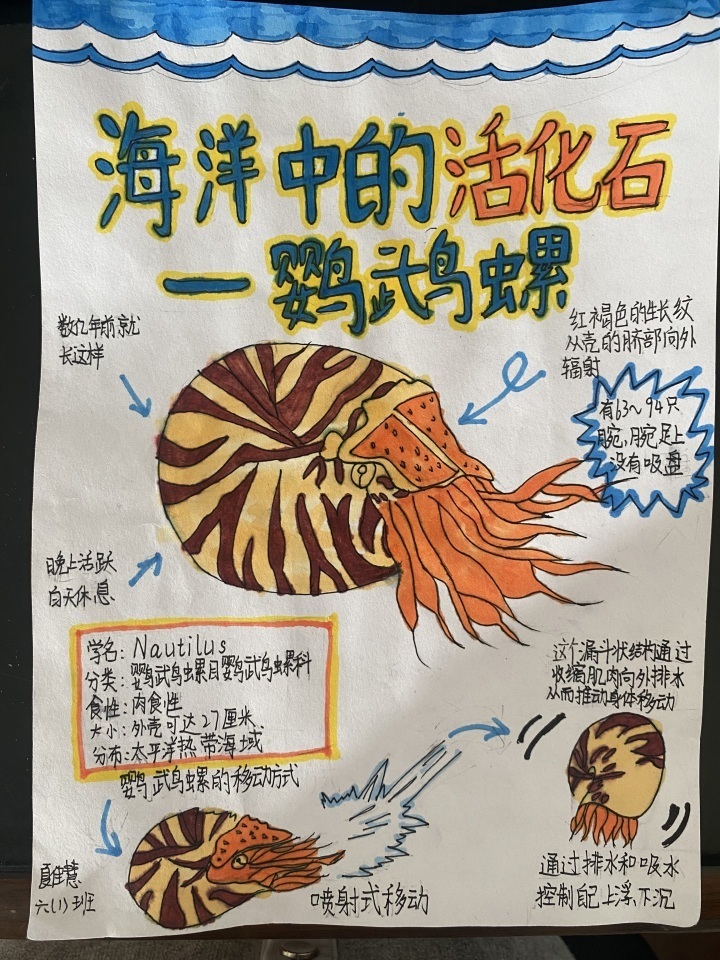 海洋中的活化石
—鹦鹉螺
数亿年前就
长这样
红褐色的生长纹
从壳的脐部向外
辐射
有63~94只
腕,腕足上
没有吸盘
晚上活跃
白天休息
学名: Nautilus
分类: 鹦鹉螺目鹦鹉螺科
食性: 肉食性
大小: 外壳可达27厘米、
分布: 太平洋热带海域
这个漏斗状结构通过
收缩肌肉向外排水
从而推动身体移动
鹦鹉螺的移动方式
喷射式移动
通过排水和吸水
控制自己上浮、下沉
六(1)班